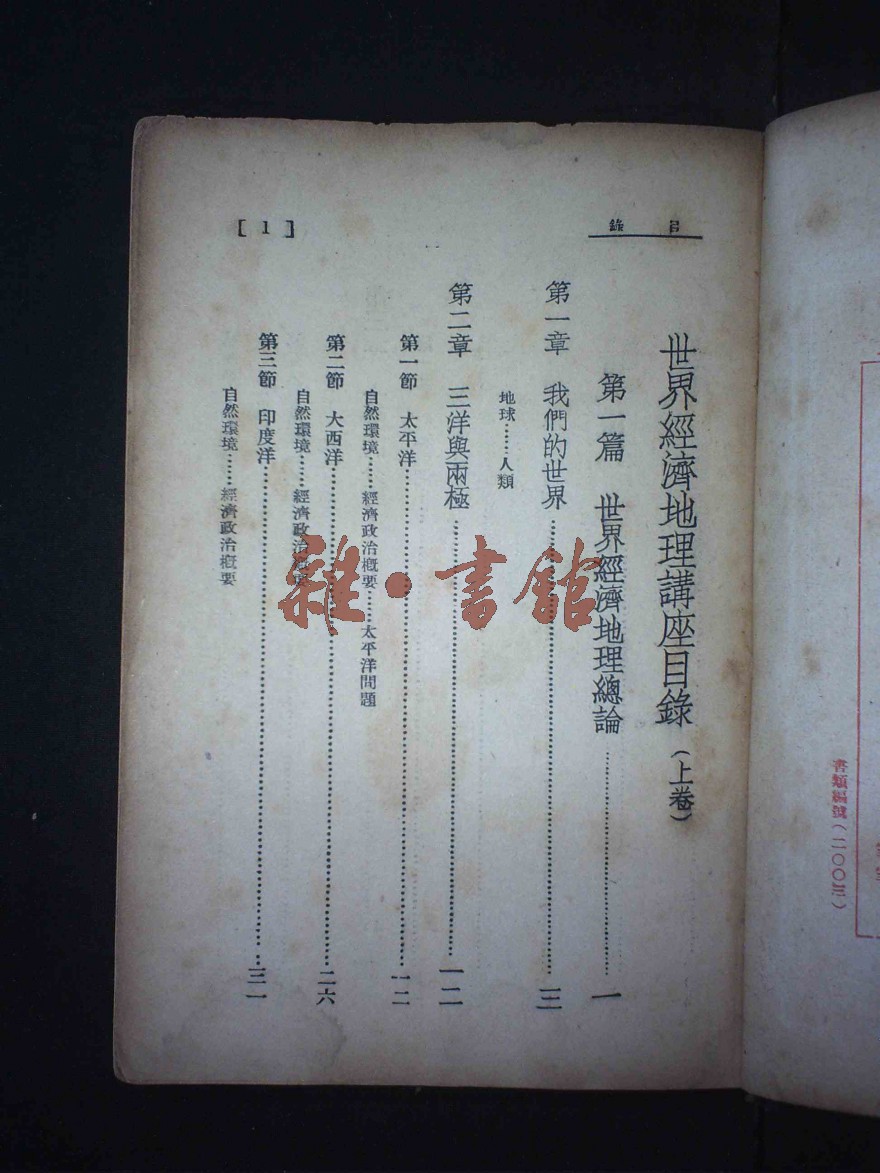 書類編號(二〇〇三)
目錄
[1]
世界經濟地理講座目錄(上卷)
第一篇 世界經濟地理總論……一
第一章 我們的世界……三
地球……人類
第二章 三洋與兩極……一二
第一節 太平洋……一二
自然環境……經濟政治概要……太平洋問題
第二節 大西洋……二六
自然環境……經濟政治概要
第三節 印度洋……三一
自然環境……經濟政治概要
雜·書館